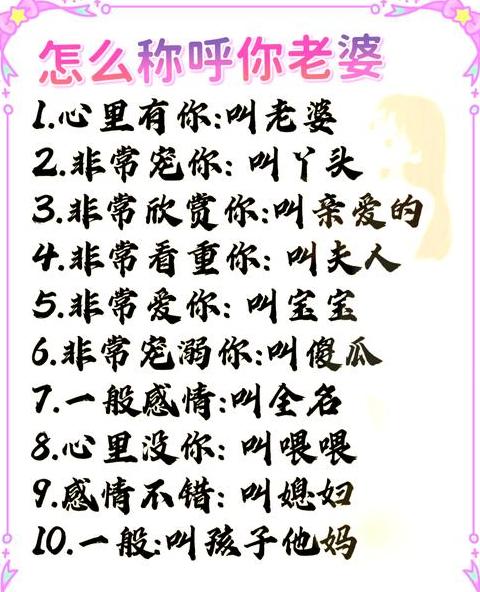 怎么称呼你老婆
1.心里有你:叫老婆
2.非常宠你:叫丫头
3.非常欣赏你:叫亲爱的
4.非常看重你:叫夫人
5.非常爱你:叫宝宝
6.非常宠溺你:叫傻瓜
7.一般感情:叫全名
8.心里没你:叫喂喂
9.感情不错:叫媳妇
10.一般:叫孩子他妈